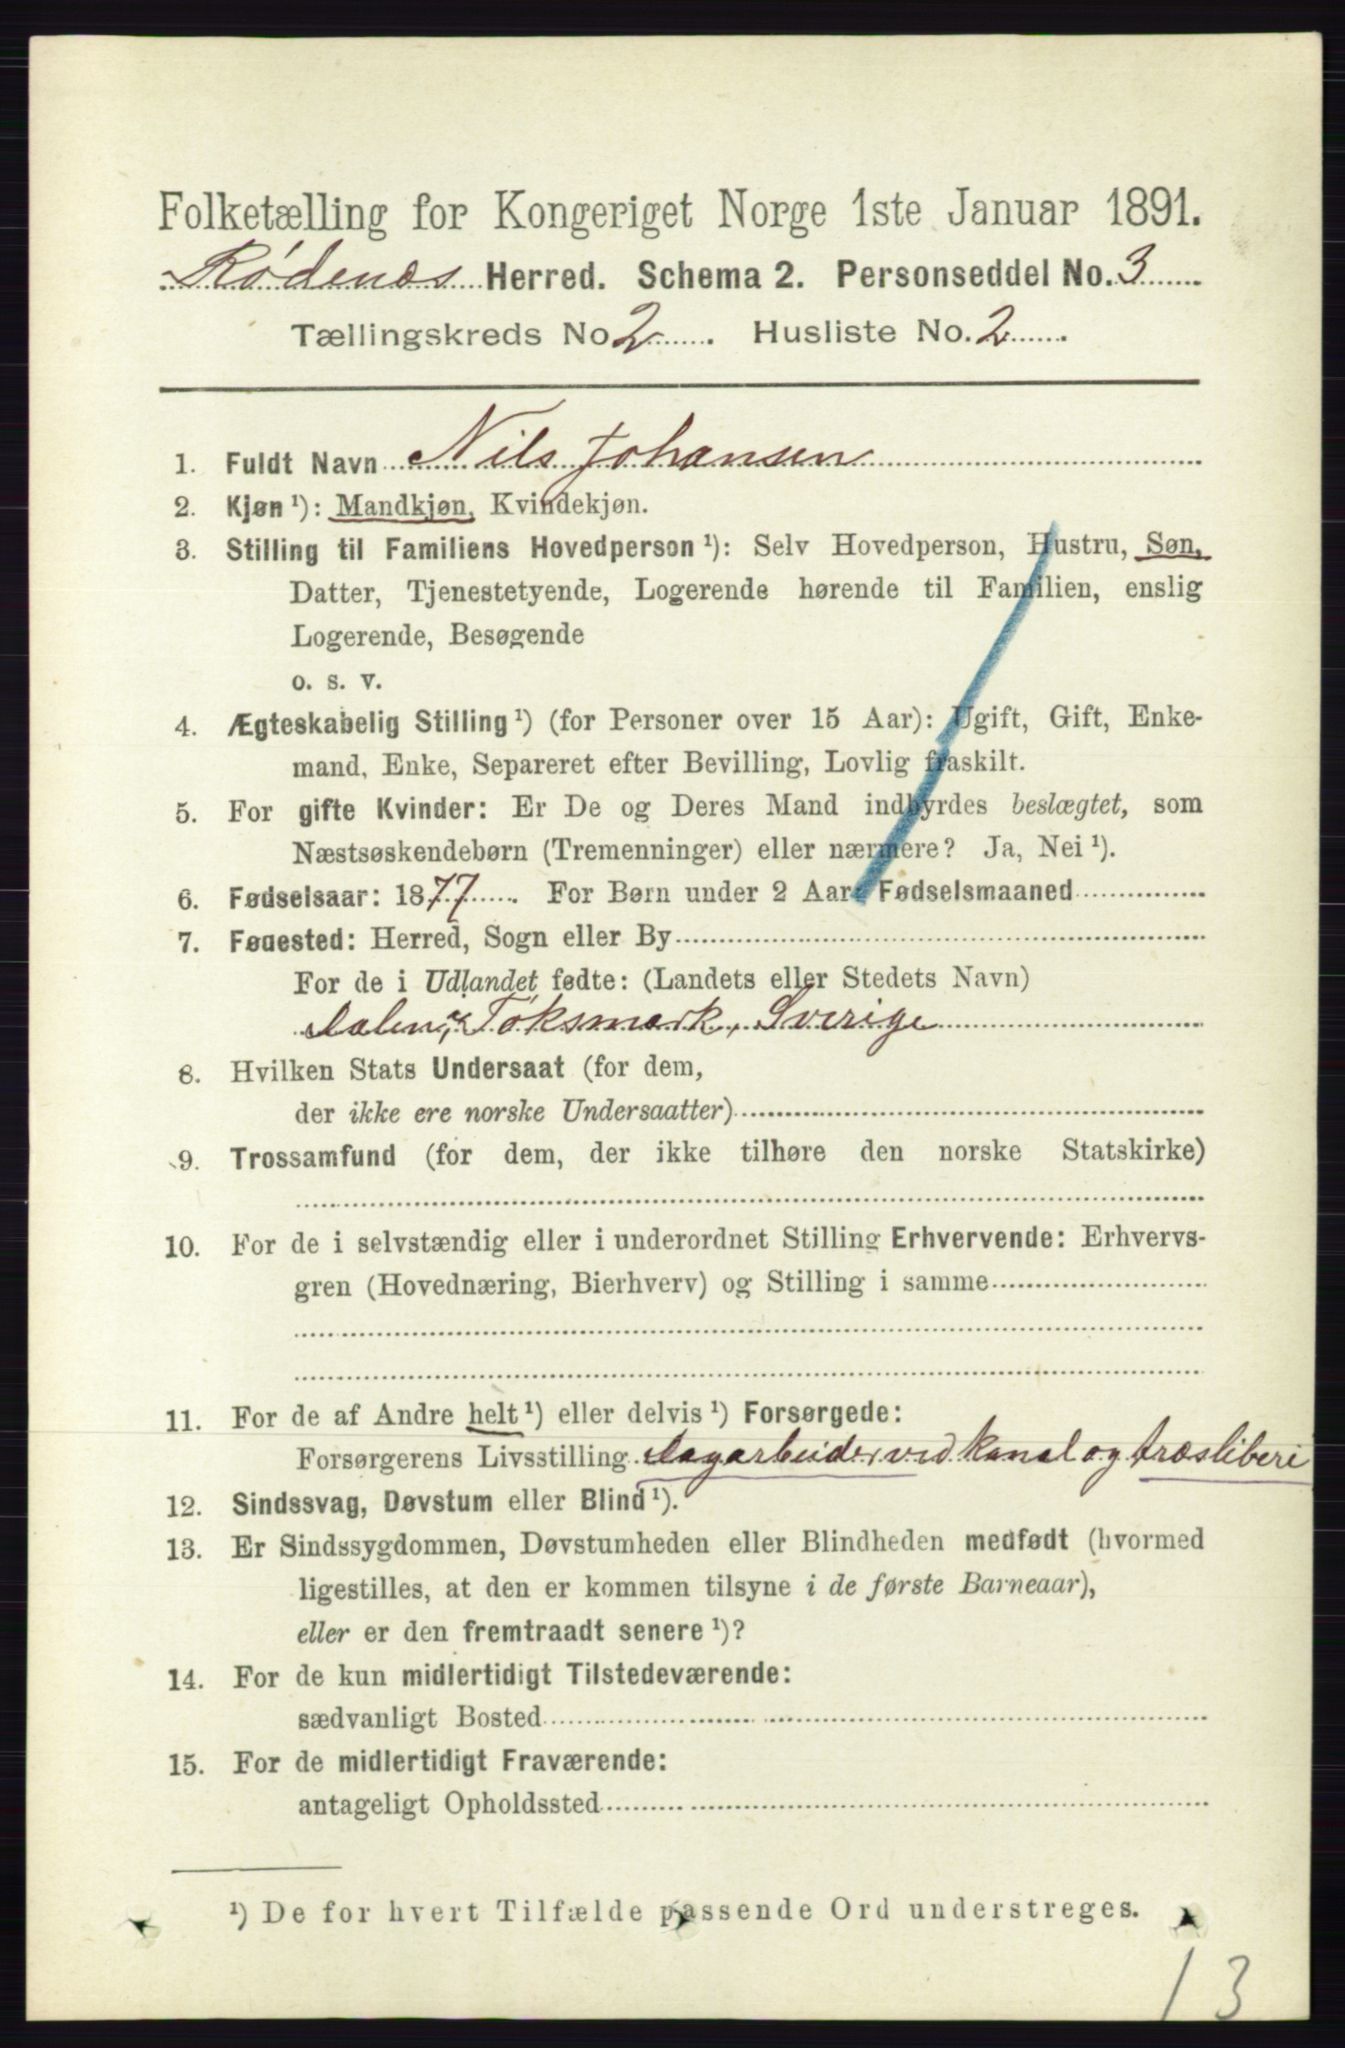 Folketælling for Kongeriget Norge 1ste Januar 1891.
Rødenes Herred. Schema 2. Personseddel No. 3
Tællingskreds No 2. Husliste No. 2.
1. Fuldt Navn Nils Johansen
2. Kjøn ¹): Mandkjøn, Kvindekjøn.
3. Stilling til Familiens Hovedperson ¹): Selv Hovedperson, Hustru, Søn,
Datter, Tjenestetyende, Logerende hørende til Familien, enslig
Logerende, Besøgende
o. s. v.
4. Ægteskabelig Stilling ¹) (for Personer over 15 Aar): Ugift, Gift, Enke-
mand, Enke, Separeret efter Bevilling, Lovlig fraskilt.
5. For gifte Kvinder: Er De og Deres Mand indbyrdes beslægtet, som
Næstsøskendebørn (Tremenninger) eller nærmere? Ja, Nei ¹).
6. Fødselsaar: 1877. For Børn under 2 Aar: Fødselsmaaned
7. Fødested: Herred, Sogn eller By
For de i Udlandet fødte: (Landets eller Stedets Navn)
Töksmark, Sverige
8. Hvilken Stats Undersaat (for dem,
der ikke ere norske Undersaatter)
9. Trossamfund (for dem, der ikke tilhøre den norske Statskirke)
10. For de i selvstændig eller i underordnet Stilling Erhvervende: Erhvervs-
gren (Hovednæring, Bierhverv) og Stilling i samme
11. For de af Andre helt ¹) eller delvis ¹) Forsørgede:
Forsørgerens Livsstilling Dagarbeider ved kanal og træsliberi
12. Sindssvag, Døvstum eller Blind ¹).
13. Er Sindssygdommen, Døvstumheden eller Blindheden medfødt (hvormed
ligestilles, at den er kommen tilsyne i de første Barneaar),
eller er den fremtraadt senere ¹)?
14. For de kun midlertidigt Tilstedeværende:
sædvanligt Bosted
15. For de midlertidigt Fraværende:
antageligt Opholdssted
¹) De for hvert Tilfælde passende Ord understreges.
13